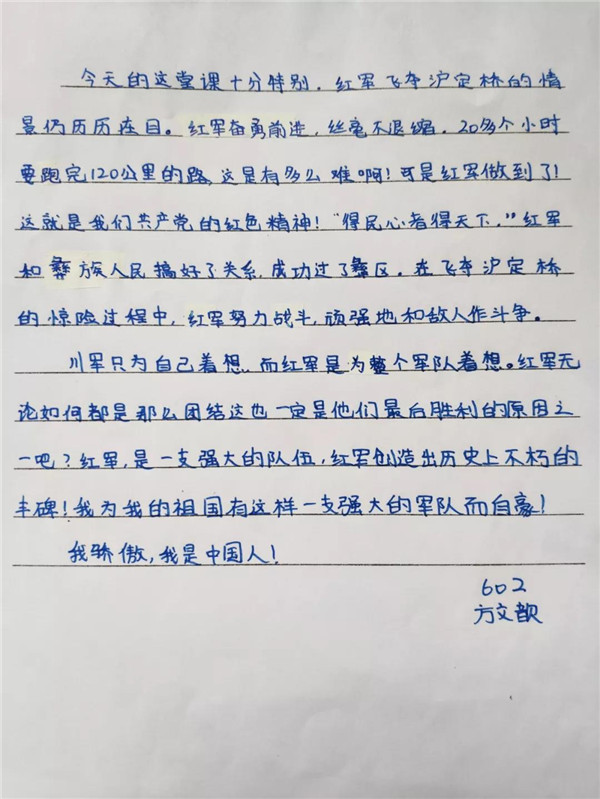 今天的这堂课十分特别，红军飞夺泸定桥的情
景仍历历在目。红军奋勇前进，丝毫不退缩，20多个小时
要跑完120公里的路，这是有多么难啊！可是红军做到了！
这就是我们共产党的红色精神！“得民心者得天下，”红军
和彝族人民搞好了关系，成功过了彝区。在飞夺泸定桥
的惊险过程中，红军努力战斗，顽强地和敌人作斗争。
川军只为自己着想，而红军是为整个军队着想。红军无
论如何都是那么团结这也一定是他们最后胜利的原因之
一吧？红军，是一支强大的队伍，红军创造出历史上不朽的
丰碑！我为我的祖国有这样一支强大的军队而自豪！
我骄傲，我是中国人！
602
方文歆